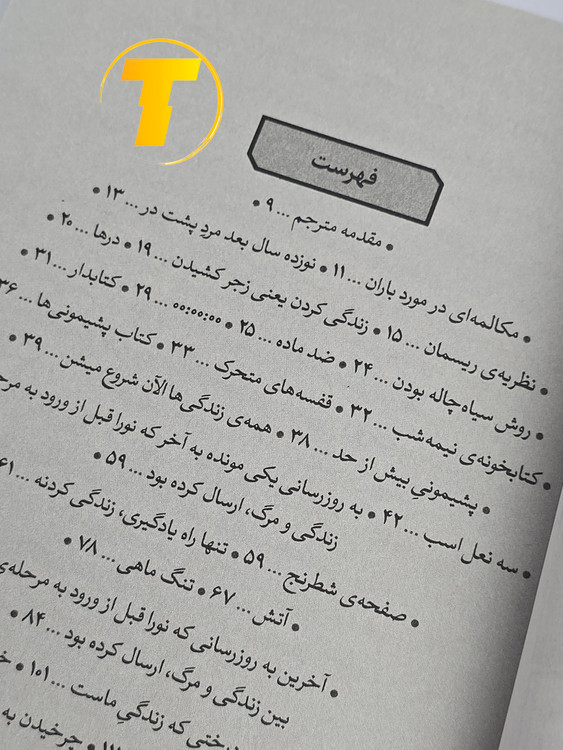 T
فهرست
• مقدمه مترجم ... ۹ •
• مکالمه‌ای در مورد باران ... ۱۱ • نوزده سال بعد مردِ پشت در ... ۱۳ •
• نظریه‌ی ریسمان ... ۱۵ • زندگی کردن یعنی زجر کشیدن ... ۱۹ • درها ... ۲۰ •
• روش سیاه‌چاله بودن ... ۲۴ • ضد ماده ... ۲۵ • ۰۰:۰۰:۰۰ ... ۲۹ • کتابدار ... ۳۱ •
• کتابخونه‌ی نیمه‌شب ... ۳۲ • قفسه‌های متحرک ... ۳۳ • کتاب پشیمونی‌ها ... ۳۶
• پشیمونیِ بیش از حد ... ۳۸ • همه‌ی زندگی‌ها الآن شروع میشن ... ۳۹ •
• سه نعل اسب ... ۴۲ • به روزرسانی یکی مونده به آخر که نورا قبل از ورود به
زندگی و مرگ، ارسال کرده بود ... ۵۹ •
• صفحه‌ی شطرنج ... ۵۹ • تنها راه یادگیری، زندگی کردنه ... ۶۱
• آتش ... ۶۷ • تنگ ماهی ... ۷۸ •
• آخرین به روزرسانی که نورا قبل از ورود به مرحله‌ی
بین زندگی و مرگ، ارسال کرده بود ... ۸۴ •
که زندگیِ ماست ... ۱۰۱ •
• چرخیدن به